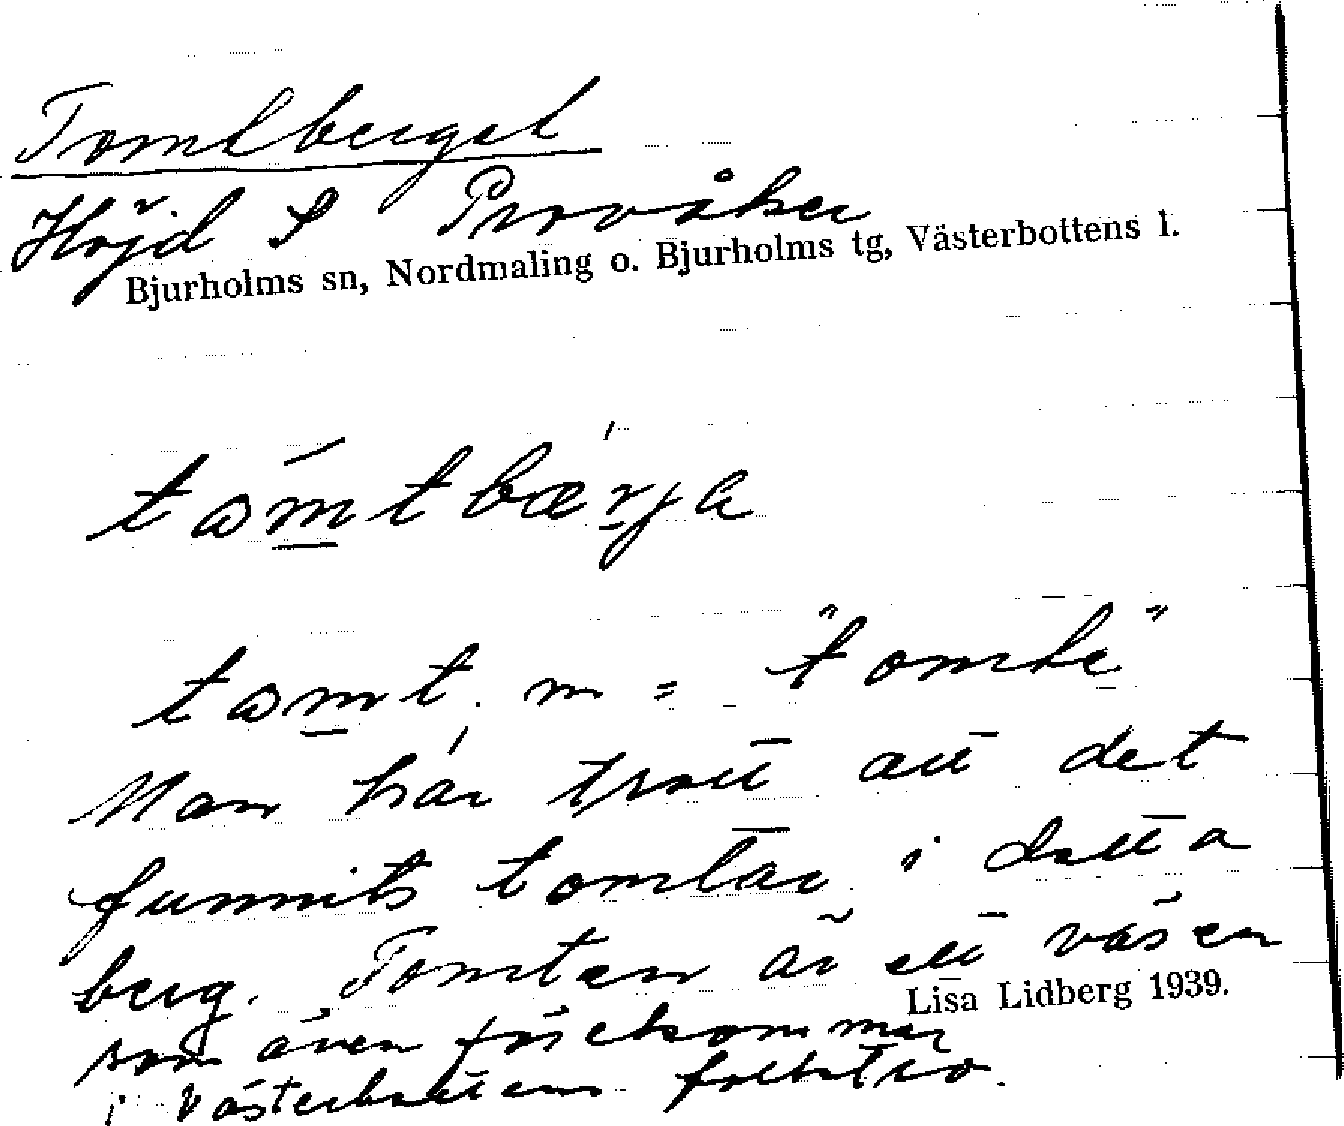 Tomtberget
Höjd S Provåker
Bjurholms sn, Nordmaling o. Bjurholms tg, Västerbottens l.
tɷmtbærja
tɷmt. m = "tomte"
Man har trott att det
funnits tomtar i detta
berg. Tomten är ett väsen
Lisa Lidberg 1939.
som även förekommer
i Västerbottens folktro.